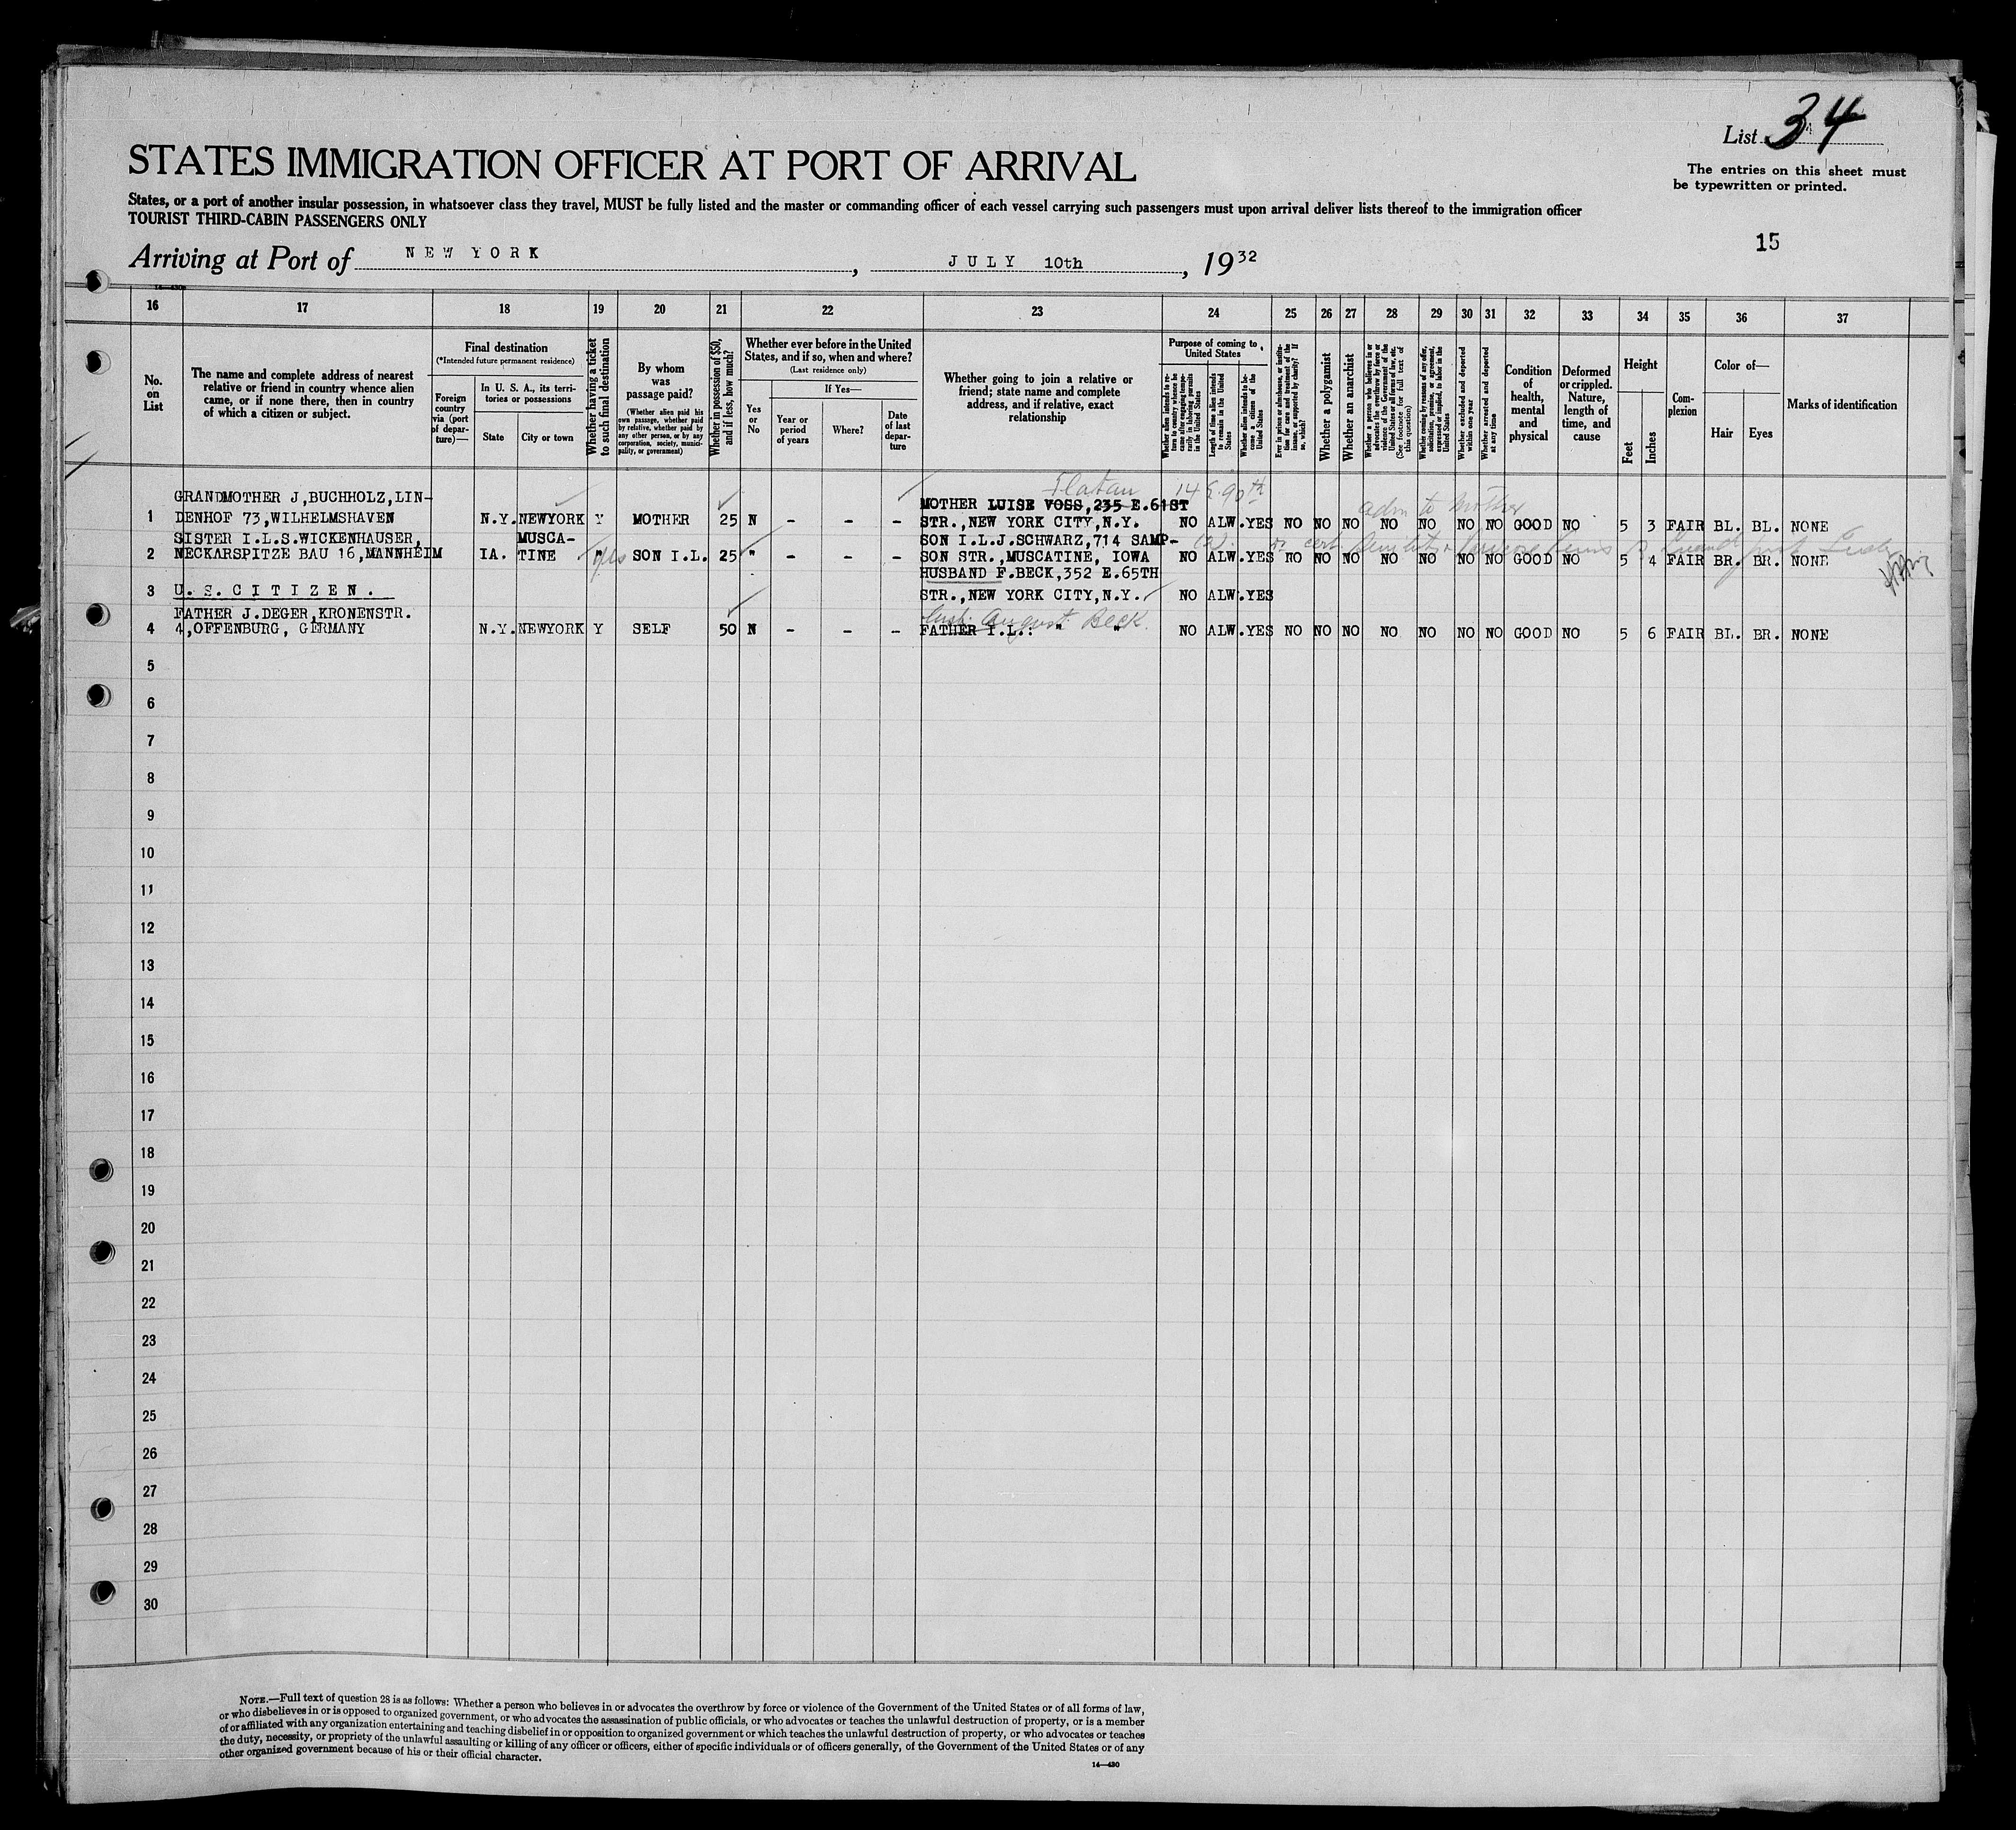 List 34
STATES IMMIGRATION OFFICER AT PORT OF ARRIVAL
The entries on this sheet must
be typewritten or printed.
States, or a port of another insular possession, in whatsoever class they travel, MUST be fully listed and the master or commanding officer of each vessel carrying such passengers must upon arrival deliver lists thereof to the immigration officer
TOURIST THIRD-CABIN PASSENGERS ONLY
15
Arriving at Port of NEW YORK, JULY 10th, 1932
16 17 18 19 20 21 22 23 24 25 26 27 28 29 30 31 32 33 34 35 36 37
No. on List
The name and complete address of nearest relative or friend in country whence alien came, or if none there, then in country of which a citizen or subject.
Final destination
(*Intended future permanent residence)
Foreign country via (port of departure)—
In U. S. A., its territories or possessions
State
City or town
Whether having a ticket to such final destination
By whom was passage paid?
(Whether alien paid his own passage, whether paid by relative, whether paid by any other person, or by any corporation, society, municipality, or government)
Whether in possession of $50, and if less, how much?
Whether ever before in the United States, and if so, when and where?
(Last residence only)
Yes or No
If Yes—
Year or period of years
Where?
Date of last departure
Whether going to join a relative or friend; state name and complete address, and if relative, exact relationship
Purpose of coming to United States
Whether alien intends to return to country whence he came after engaging temporarily in laboring pursuits in the United States
Length of time alien intends to remain in the United States
Whether alien intends to become a citizen of the United States
Ever in prison or almshouse, or institution for care and treatment of the insane, or supported by charity? If so, which?
Whether a polygamist
Whether an anarchist
Whether a person who believes in or advocates the overthrow by force or violence of the Government of the United States or all forms of law, etc. (See footnote for full text of this question)
Whether coming by reasons of any offer, solicitation, promise, or agreement, expressed or implied, to labor in the United States
Whether excluded and deported within one year
Whether arrested and deported at any time
Condition of health, mental and physical
Deformed or crippled. Nature, length of time, and cause
Height
Feet
Inches
Complexion
Color of—
Hair
Eyes
Marks of identification
Flatau 14 E. 90th
adm to Mother
GRANDMOTHER J,BUCHHOLZ,LIN- MOTHER LUISE VOSS,235 E.61ST
1 DENHOF 73,WILHELMSHAVEN N.Y. NEWYORK Y MOTHER 25 N - - - STR.,NEW YORK CITY,N.Y. NO ALW. YES NO NO NO NO NO NO NO GOOD NO 5 3 FAIR BL. BL. NONE
SISTER I.L.S.WICKENHAUSER, MUSCA- SON I.L.J.SCHWARZ,714 SAMP-
2 NECKARSPITZE BAU 16,MANNHEIM IA. TINE " yes SON I.L. 25 " - - - SON STR.,MUSCATINE, IOWA NO ALW. YES NO NO NO NO NO NO NO GOOD NO 5 4 FAIR BR. BR. NONE
HUSBAND F.BECK,352 E.65TH
3 U.S.CITIZEN. STR.,NEW YORK CITY,N.Y. NO ALW. YES
FATHER J.DEGER,KRONENSTR. August Beck
4 4,OFFENBURG, GERMANY N.Y. NEWYORK Y SELF 50 N - - - FATHER I.L.: " " NO ALW. YES NO NO NO NO NO NO NO GOOD NO 5 6 FAIR BL. BR. NONE
5
6
7
8
9
10
11
12
13
14
15
16
17
18
19
20
21
22
23
24
25
26
27
28
29
30
NOTE.—Full text of question 28 is as follows: Whether a person who believes in or advocates the overthrow by force or violence of the Government of the United States or of all forms of law,
or who disbelieves in or is opposed to organized government, or who advocates the assassination of public officials, or who advocates or teaches the unlawful destruction of property, or is a member
of or affiliated with any organization entertaining and teaching disbelief in or opposition to organized government or which teaches the unlawful destruction of property, or who advocates or teaches
the duty, necessity, or propriety of the unlawful assaulting or killing of any officer or officers, either of specific individuals or of officers generally, of the Government of the United States or of any
other organized government because of his or their official character.
14—430